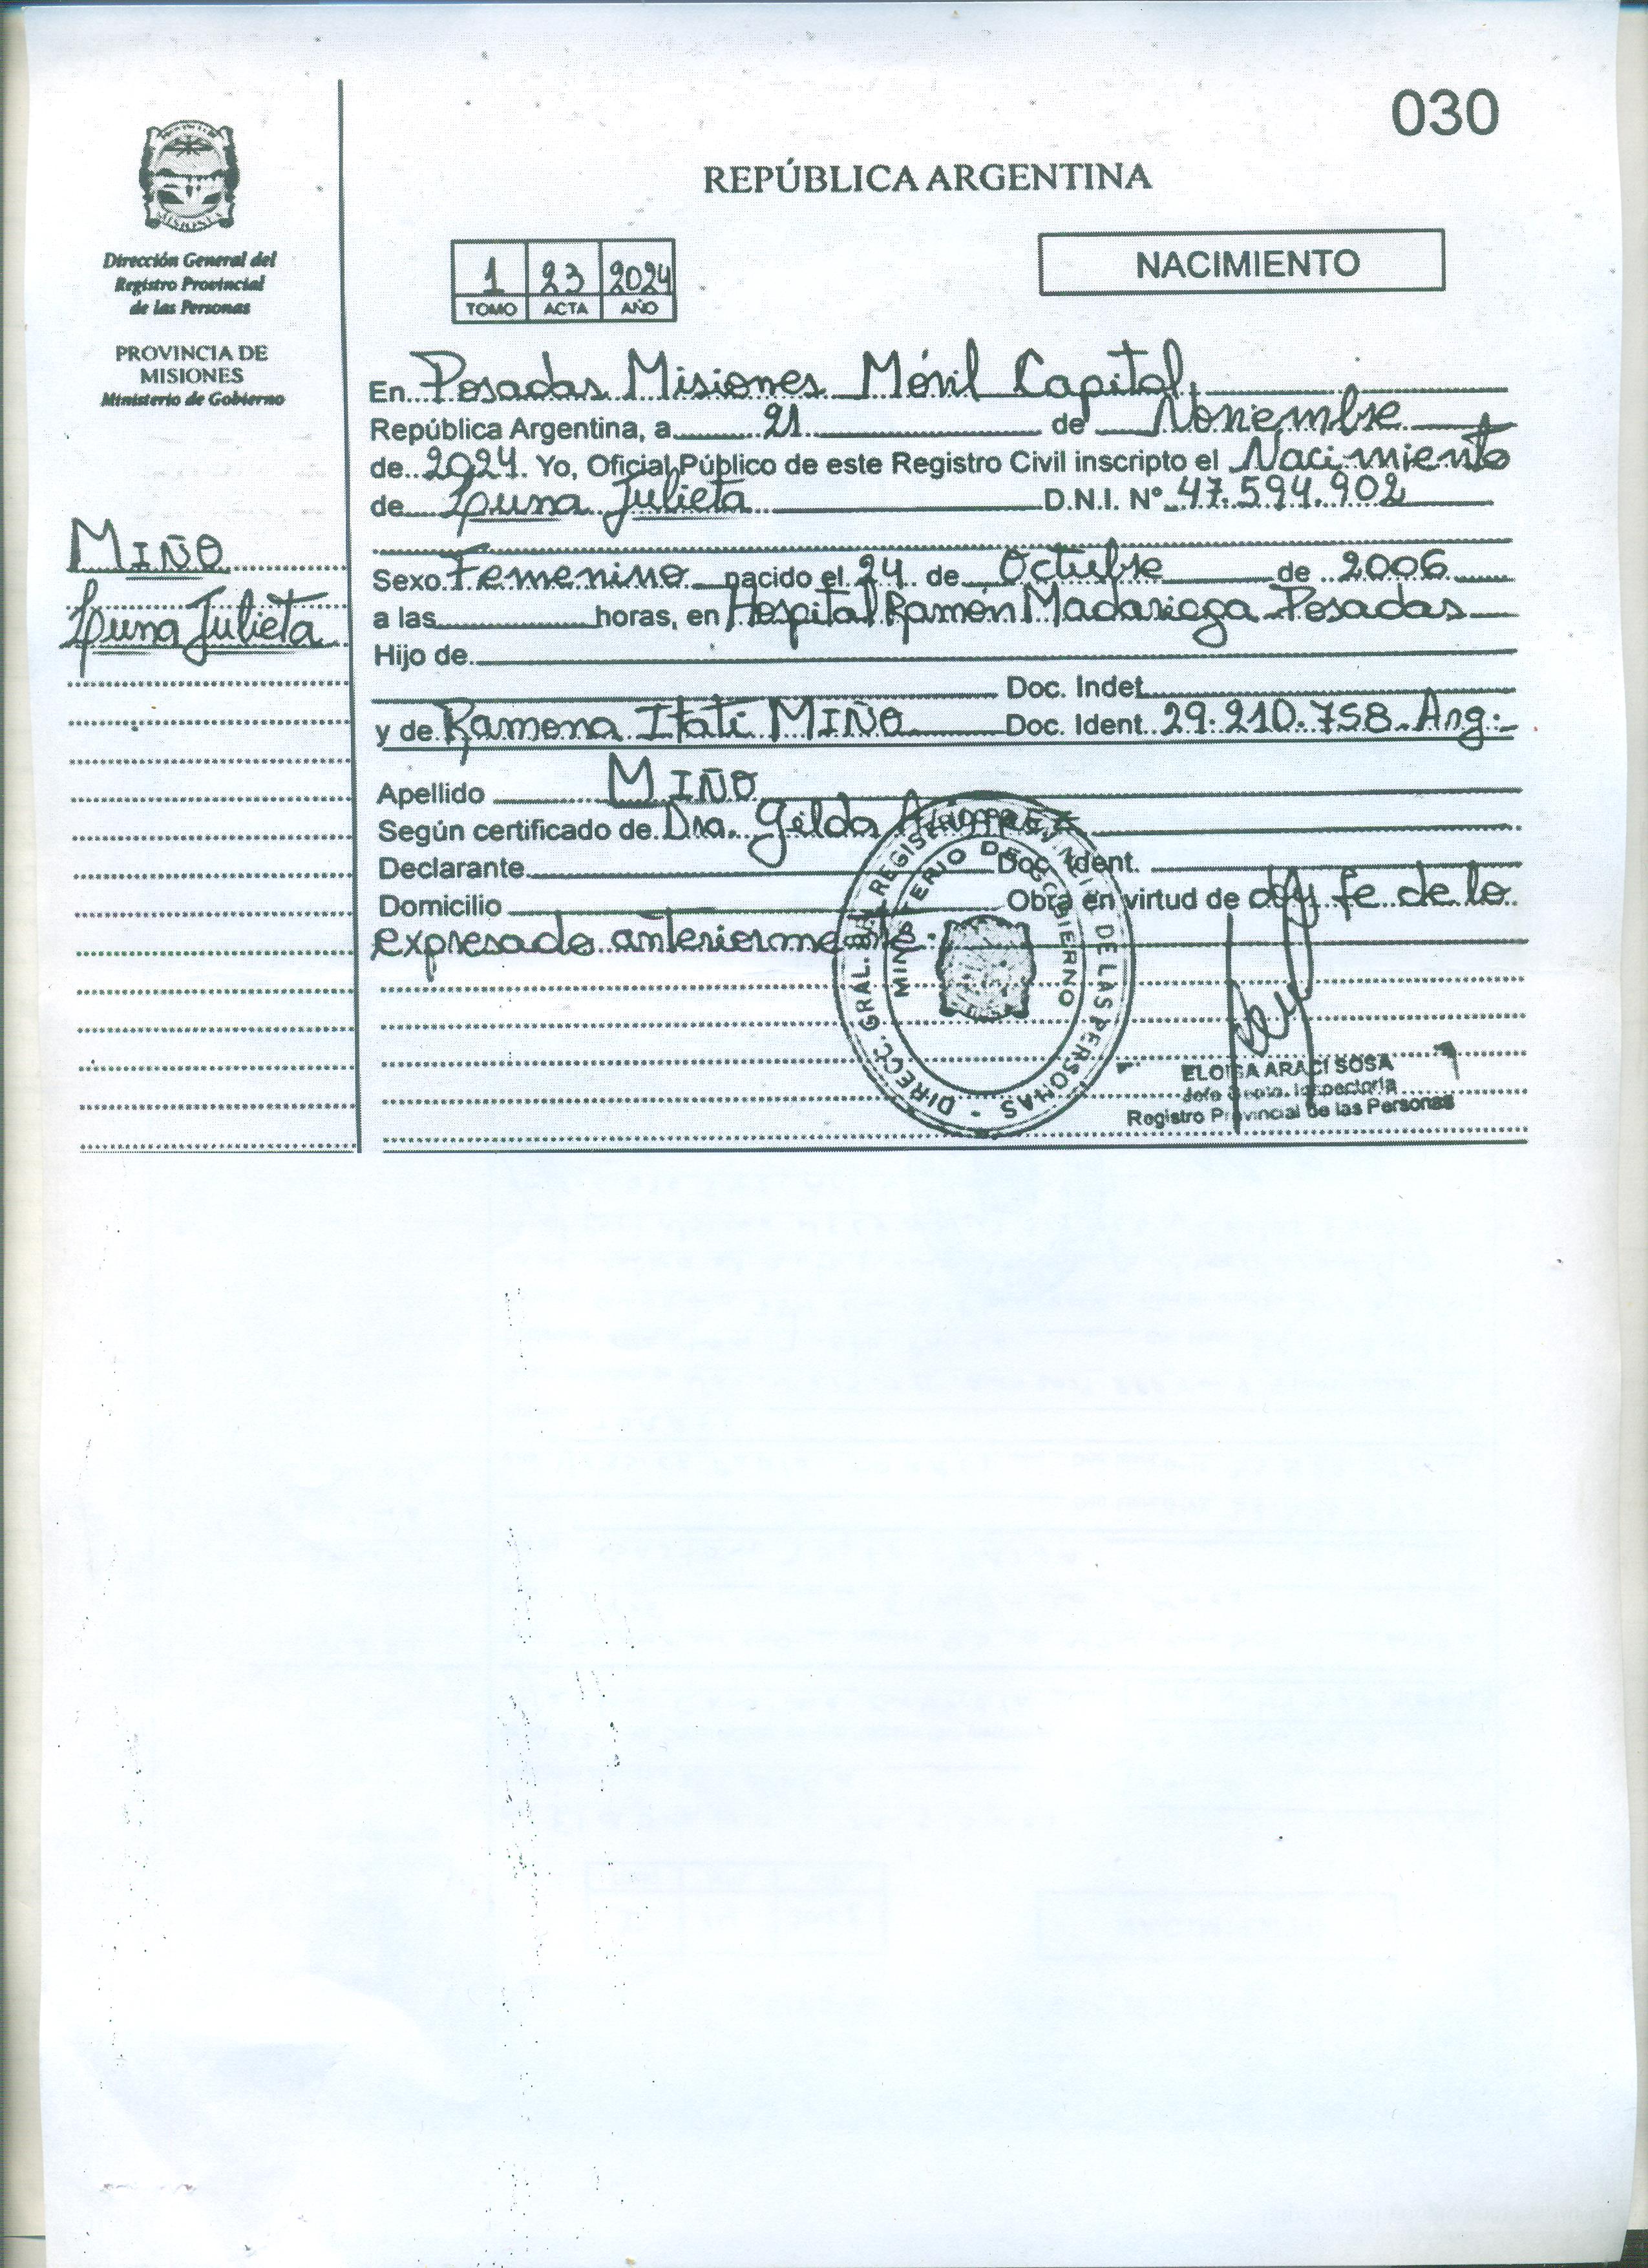 030
REPÚBLICA ARGENTINA
MISIONES
Dirección General del
Registro Provincial
de las Personas
PROVINCIA DE
MISIONES
Ministerio de Gobierno
1 23 2024
TOMO ACTA AÑO
NACIMIENTO
MIÑO
Luna Julieta
En Posadas Misiones Móvil Capital
República Argentina, a 21 de Noviembre
de 2024. Yo, Oficial Público de este Registro Civil inscripto el Nacimiento
de Luna Julieta D.N.I. Nº 47.594.902
Sexo Femenino nacido el 24 de Octubre de 2006
a las horas, en Hospital Ramón Madariaga Posadas
Hijo de
Doc. Indet
y de Ramona Itatí MIÑO Doc. Ident. 29.210.758 Arg.
Apellido MIÑO
Según certificado de Dra. Gilda
Declarante Doc. Ident.
Domicilio Obra en virtud de doy fe de lo
expresado anteriormente.
DIRECC. GRAL. DEL REGISTRO PROVINCIAL DE LAS PERSONAS
MINISTERIO DE GOBIERNO
ELOISA ARACÍ SOSA
Jefe Depto. Inspectoría
Registro Provincial de las Personas